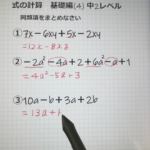 式の計算 基礎編(4)中2レベル
同類項をまとめなさい
① 7x-6xy+5x-2xy
=12x-8xy
② -2a²-4a+2+6a²-a+1
=4a²-5a+3
③ 10a-b+3a+2b
=13a+